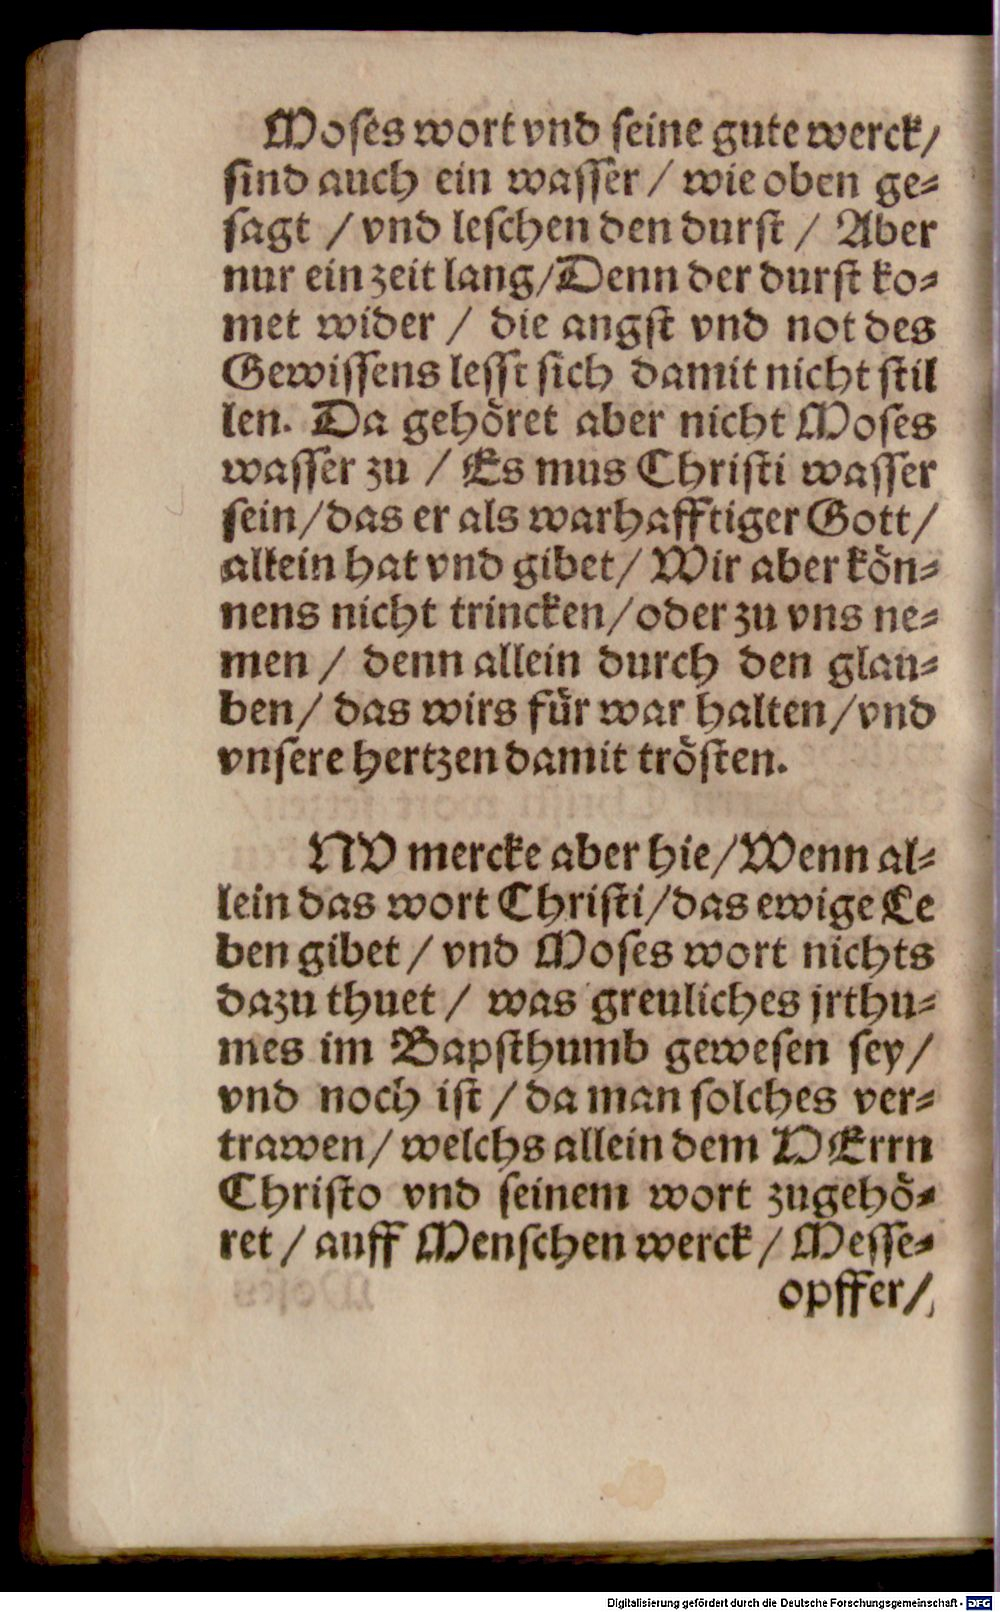 Moses wort vnd seine gute werck/
sind auch ein wasser / wie oben ge⸗
sagt / vnd leschen den durst / Aber
nur ein zeit lang/Denn der durst ko⸗
met wider / die angst vnd not des
Gewissens lesst sich damit nicht stil
len. Da gehöret aber nicht Moses
wasser zu / Es mus Christi wasser
sein/das er als warhafftiger Gott/
allein hat vnd gibet/ Wir aber kön⸗
nens nicht trincken/oder zu vns ne⸗
men / denn allein durch den glau⸗
ben/ das wirs für war halten/vnd
vnsere hertzen damit trösten.
NV mercke aber hie/Wenn al⸗
lein das wort Christi/das ewige Le
ben gibet / vnd Moses wort nichts
dazu thuet / was greuliches jrthu⸗
mes im Bapsthumb gewesen sey/
vnd noch ist / da man solches ver⸗
trawen/ welchs allein dem HErrn
Christo vnd seinem wort zugehö⸗
ret / auff Menschen werck / Messe⸗
opffer/
Digitalisierung gefördert durch die Deutsche Forschungsgemeinschaft - DFG